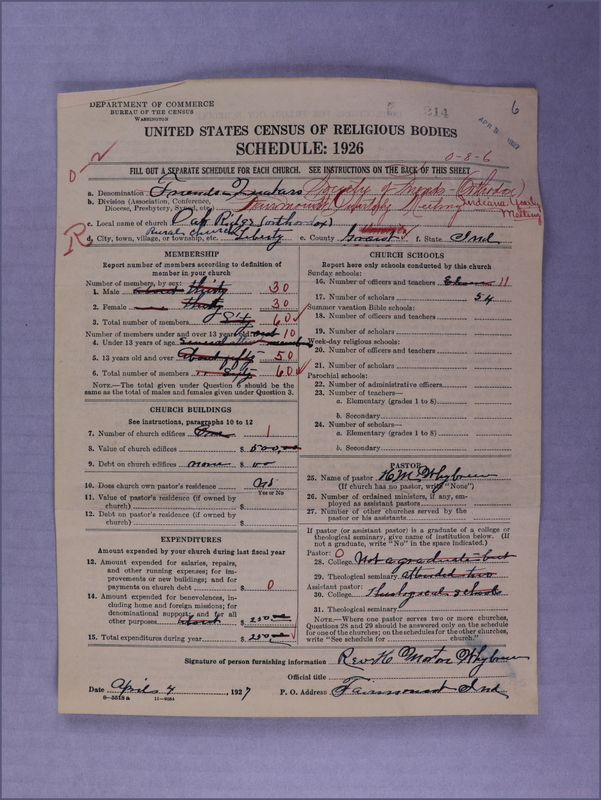 6
DEPARTMENT OF COMMERCE
BUREAU OF THE CENSUS
WASHINGTON
314
UNITED STATES CENSUS OF RELIGIOUS BODIES
SCHEDULE: 1926
0-8-6
FILL OUT A SEPARATE SCHEDULE FOR EACH CHURCH. SEE INSTRUCTIONS ON THE BACK OF THIS SHEET
a. Denomination Friends Quakers Society of Friends (Orthodox)
b. Division (Association, Conference, Diocese, Presbytery, Synod, etc.) Fairmount Quarterly Meeting Indiana Yearly Meeting
c. Local name of church Oak Ridge (orthodox)
R
d. City, town, village, or township, etc. Rural church Liberty e. County Grant f. State Ind
MEMBERSHIP
Report number of members according to definition of member in your church
Number of members by sex:
1. Male about thirty 30
2. Female thirty 30
3. Total number of members 60
Number of members under and over 13 years old:
4. Under 13 years of age 10
5. 13 years old and over About fifty 50
6. Total number of members 60
NOTE.—The total given under Question 6 should be the same as the total of males and females given under Question 3.
CHURCH BUILDINGS
See instructions, paragraphs 10 to 12
7. Number of church edifices One 1
8. Value of church edifices $
9. Debt on church edifices none $ 00
10. Does church own pastor's residence? No
Yes or No
11. Value of pastor's residence (if owned by church) $
12. Debt on pastor's residence (if owned by church) $
EXPENDITURES
Amount expended by your church during last fiscal year
13. Amount expended for salaries, repairs, and other running expenses; for improvements or new buildings; and for payments on church debt $ 0
14. Amount expended for benevolences, including home and foreign missions; for denominational support; and for all other purposes about $ 250
15. Total expenditures during year $ 250
CHURCH SCHOOLS
Report here only schools conducted by this church
Sunday schools:
16. Number of officers and teachers Eleven 11
17. Number of scholars 54
Summer vacation Bible schools:
18. Number of officers and teachers
19. Number of scholars
Week-day religious schools:
20. Number of officers and teachers
21. Number of scholars
Parochial schools:
22. Number of administrative officers
23. Number of teachers—
a. Elementary (grades 1 to 8)
b. Secondary
24. Number of scholars—
a. Elementary (grades 1 to 8)
b. Secondary
PASTOR
25. Name of pastor
(If church has no pastor, write "None")
26. Number of ordained ministers, if any, employed as assistant pastors
27. Number of other churches served by the pastor or his assistants
If pastor (or assistant pastor) is a graduate of a college or theological seminary, give name of institution below. (If not a graduate, write "No" in the space indicated.)
Pastor: 0
28. College Not a graduate but
29. Theological seminary attended two
Assistant pastor:
30. College Theological schools
31. Theological seminary
NOTE.—Where one pastor serves two or more churches, Questions 28 and 29 should be answered only on the schedule for one of the churches; on the schedules for the other churches, write "See schedule for church."
Signature of person furnishing information Rev. H. Morton
Official title
Date April 4 1927 P. O. Address Fairmount Ind